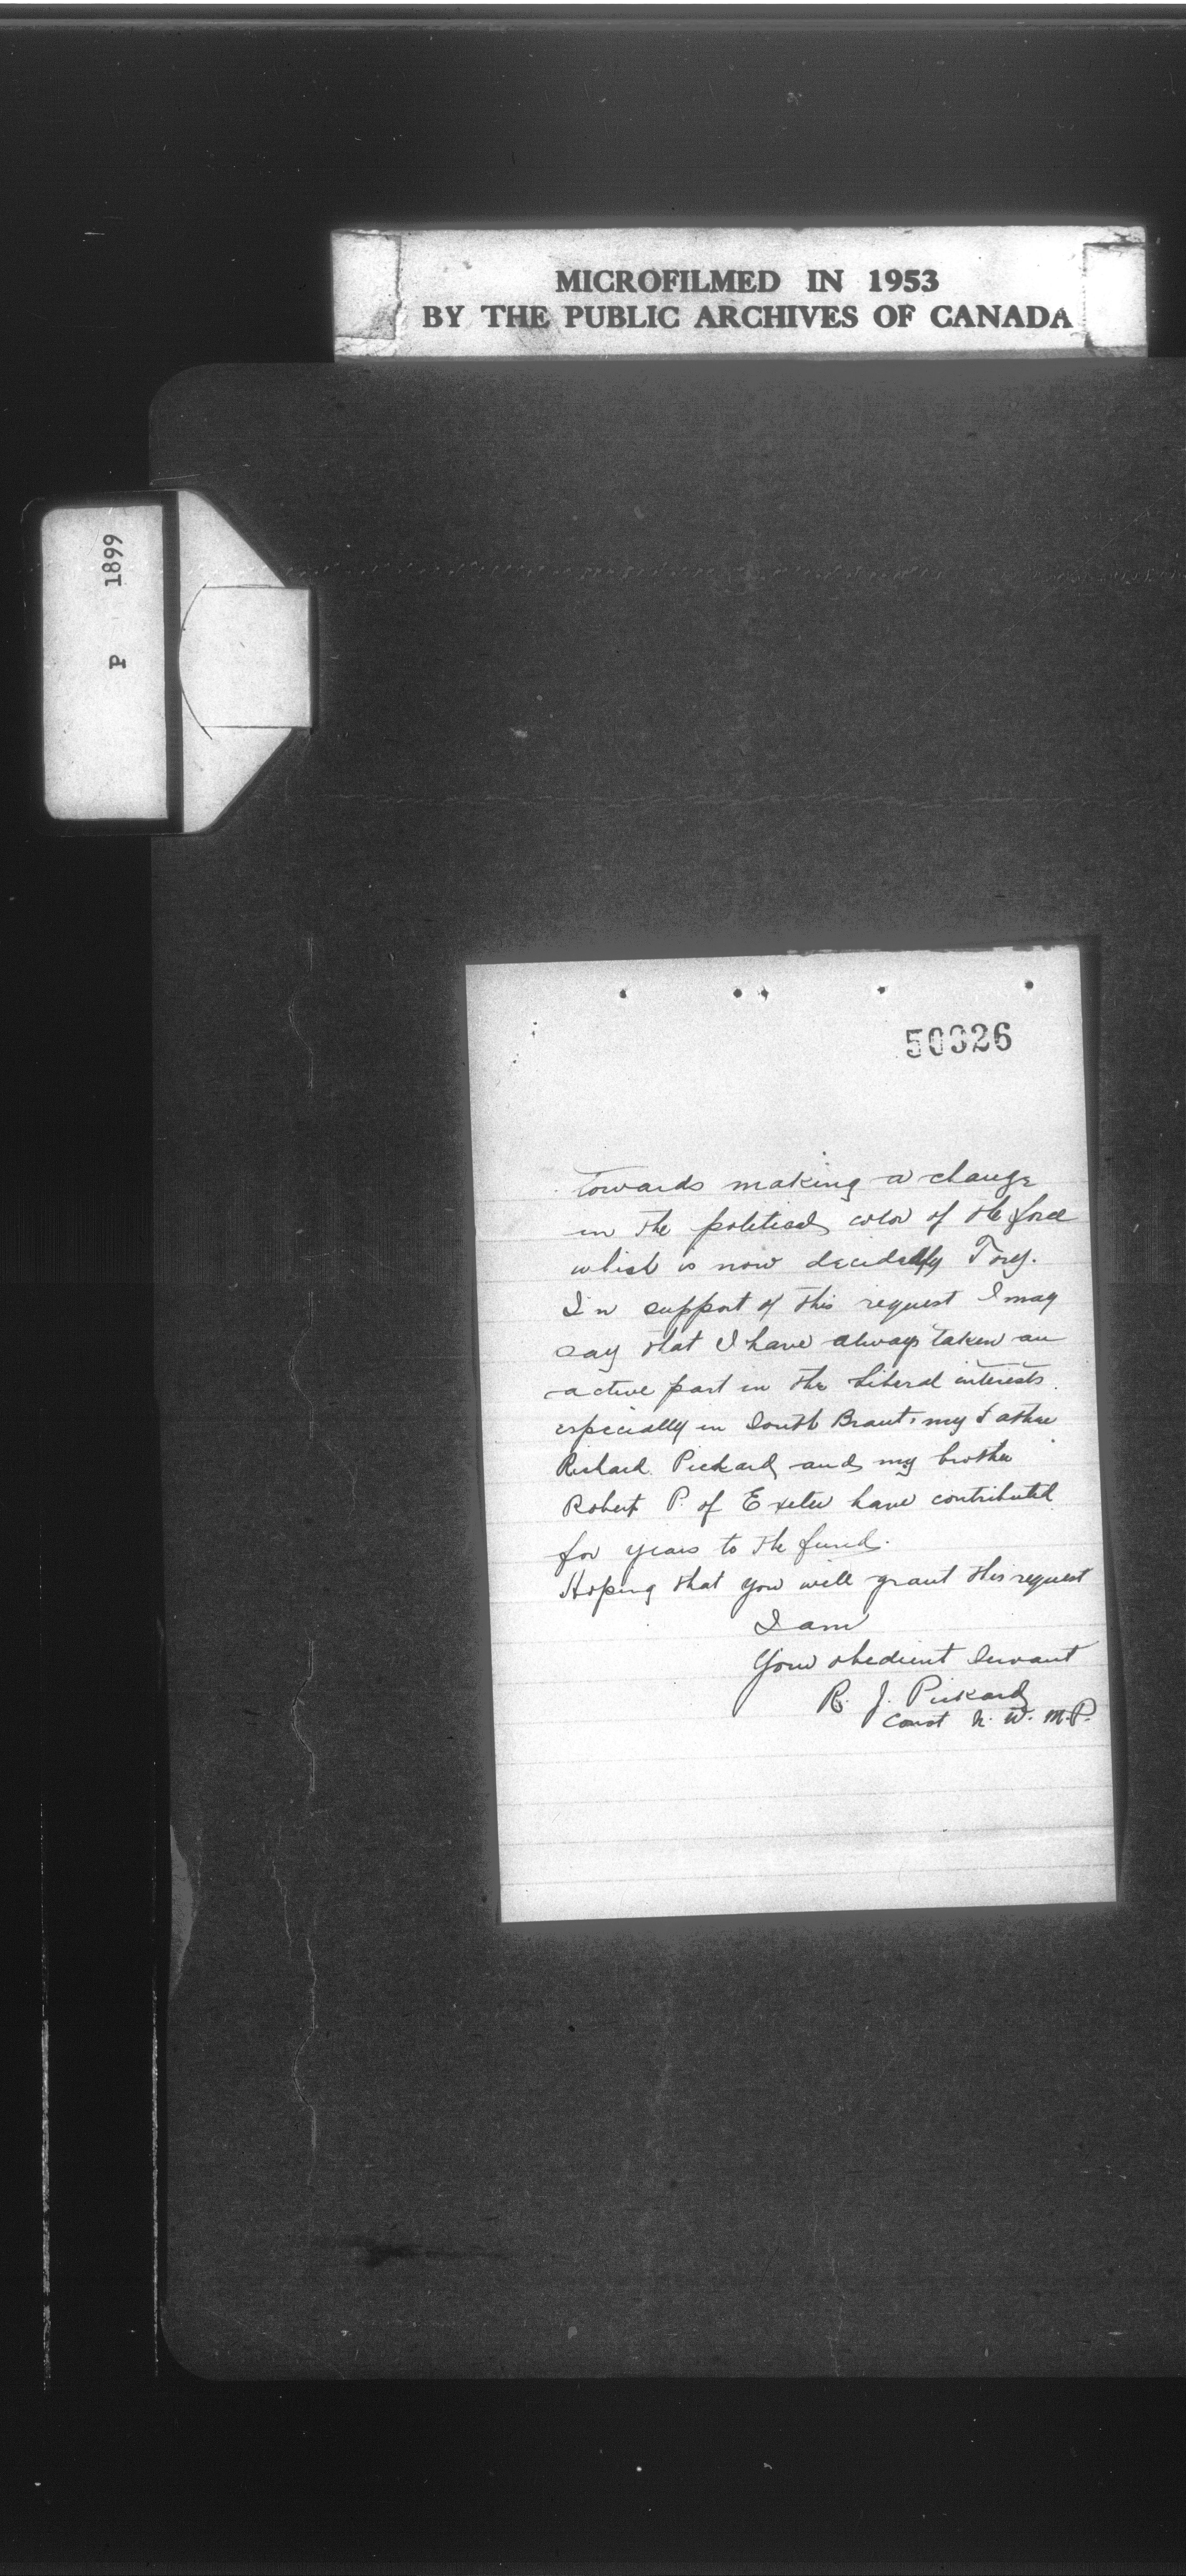 MICROFILMED IN 1953
BY THE PUBLIC ARCHIVES OF CANADA
P 1899
50326
towards making a change
in the political color of the force
which is now decidedly Tory.
In support of this request I may
say that I have always taken an
active part in the Liberal interests
especially in South Brant. my Father
Richard Pickard and my brother
Robert P. of Exeter have contributed
for years to the fund.
Hoping that you will grant this request
I am
Your obedient servant
R. J. Pickard
Const N. W. M. P.